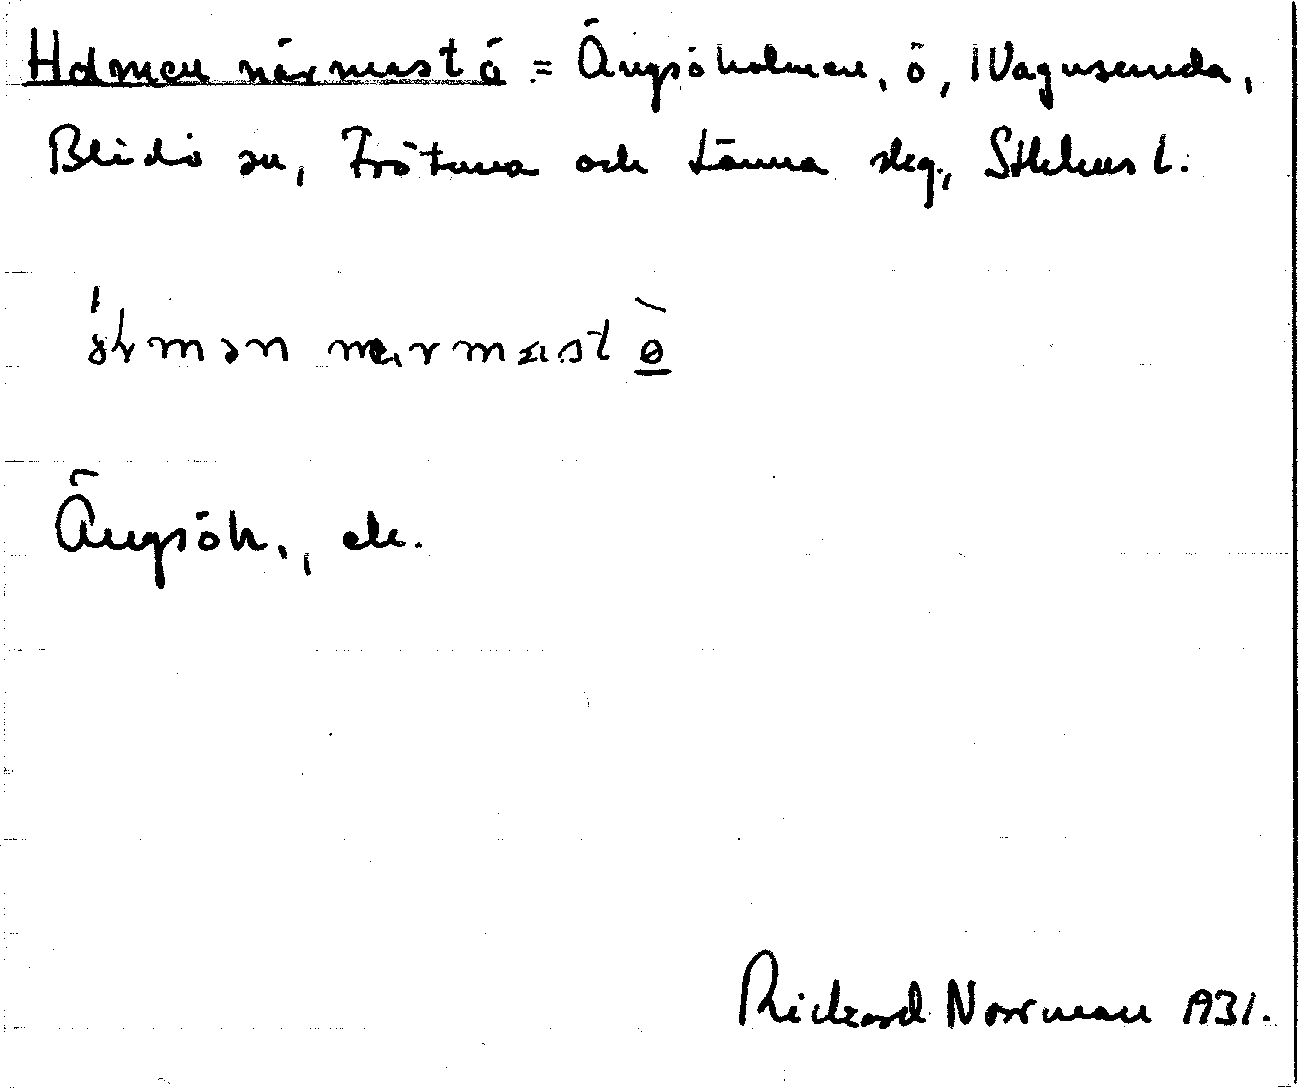 Holmen närmast å = Ängsöholmen, ö, i Vagnsunda,
Blidö sn, Frötuna och Länna skg, Sthlms l.
Ängsöh., ek.
Rickard Norrman 1931.